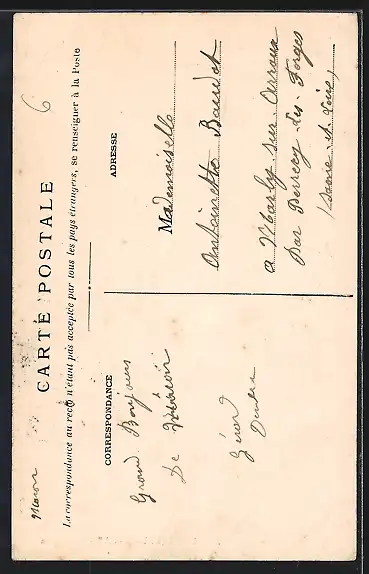 CARTE POSTALE
La correspondance au recto n'étant pas acceptée par tous les pays étrangers, se renseigner à la Poste
6
CORRESPONDANCE
Grand Bonjour
De
Gérard
ADRESSE
Mademoiselle
Antoinette Baudot
a Marly sur Arroux
Par Perrecy les Forges
Saone et Loire